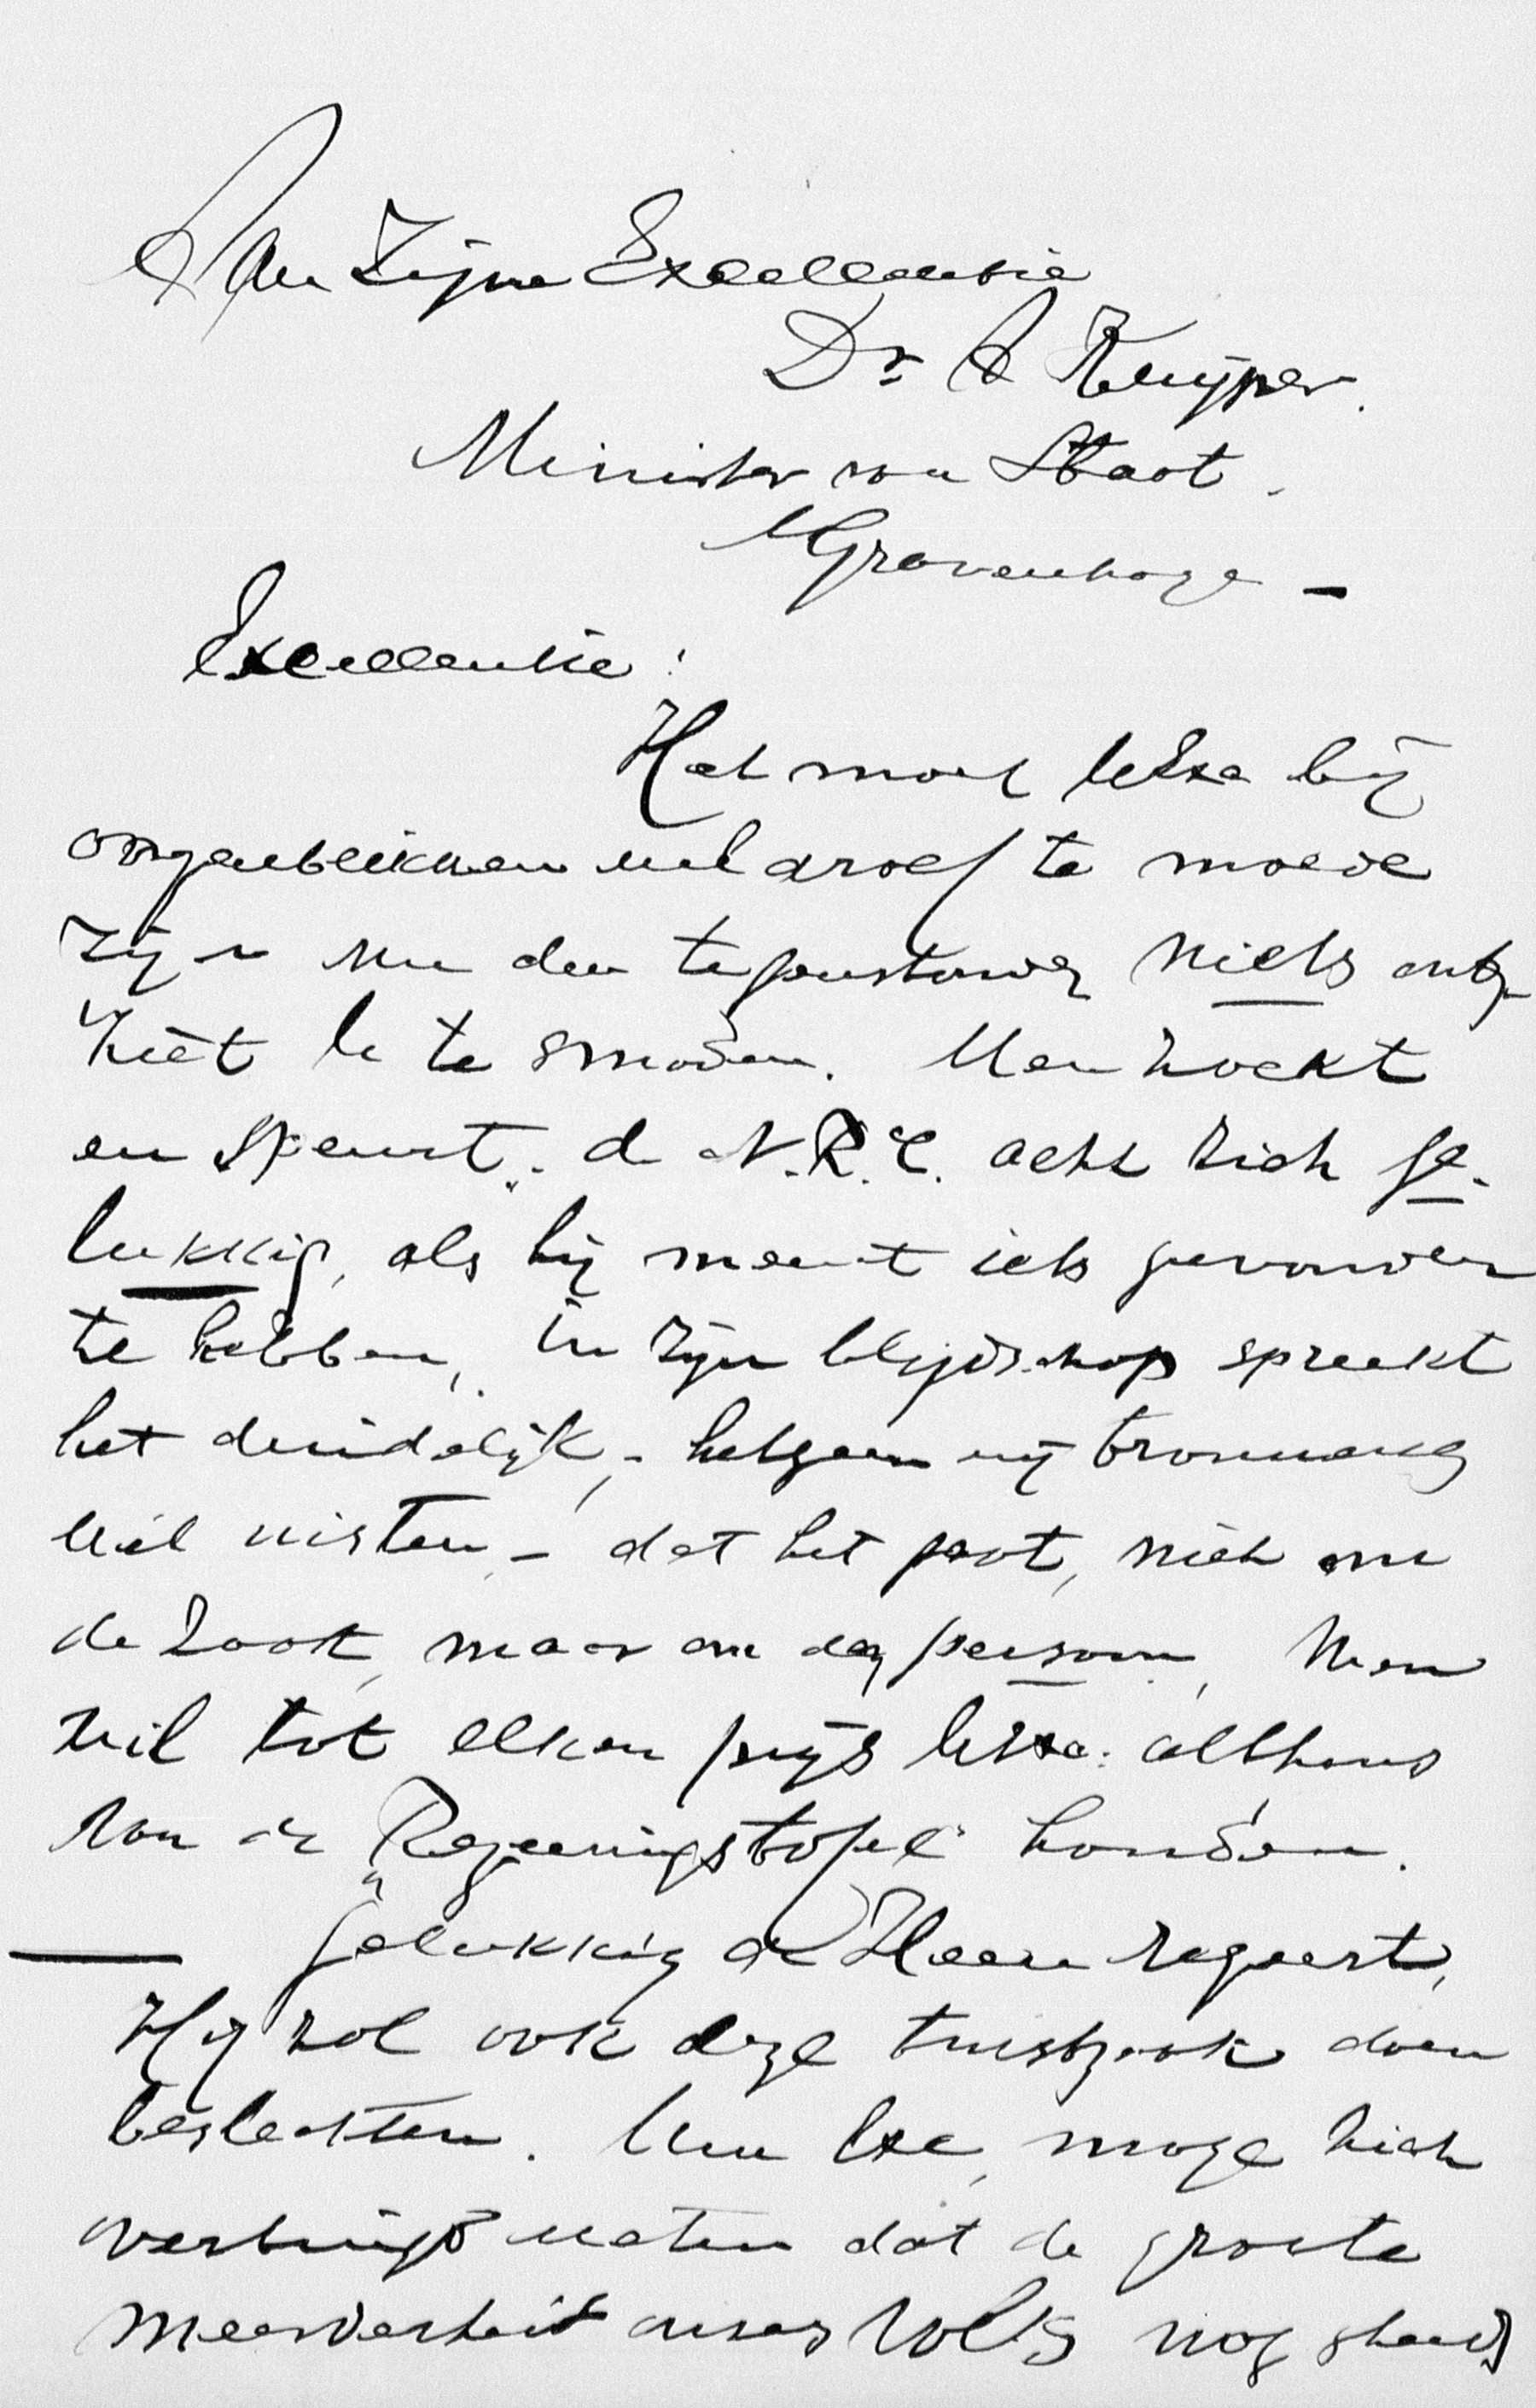 Aan Zijne Excellentie
Dr. A Kuyper.
Minister van Staat.
's Gravenhage —
Excellentie!
Het moet UExc bij
oogenblikken wel droef te moede
zijn nu den tegenstander niets ont-
ziet U te smaden. Men zoekt
en speurt. de N.R.C. acht zich ge-
lukkig, als hij meent iets gevonden
te hebben, in zijn blijdschap spreekt
het duidelijk, - hetgeen wij trouwens
wel wisten - dat het gaat, niet om
de zaak, maar om den persoon, Men
wil tot elken prijs UExc. althans
van de "Regeeringstafel" houden.
— Gelukkig de Heere regeert,
Hij zal ook deze twistzaak doen
beslechten. Uwe Exc, moge zich
overtuigd weten dat de groote
meerderheid onzes volks nog steeds